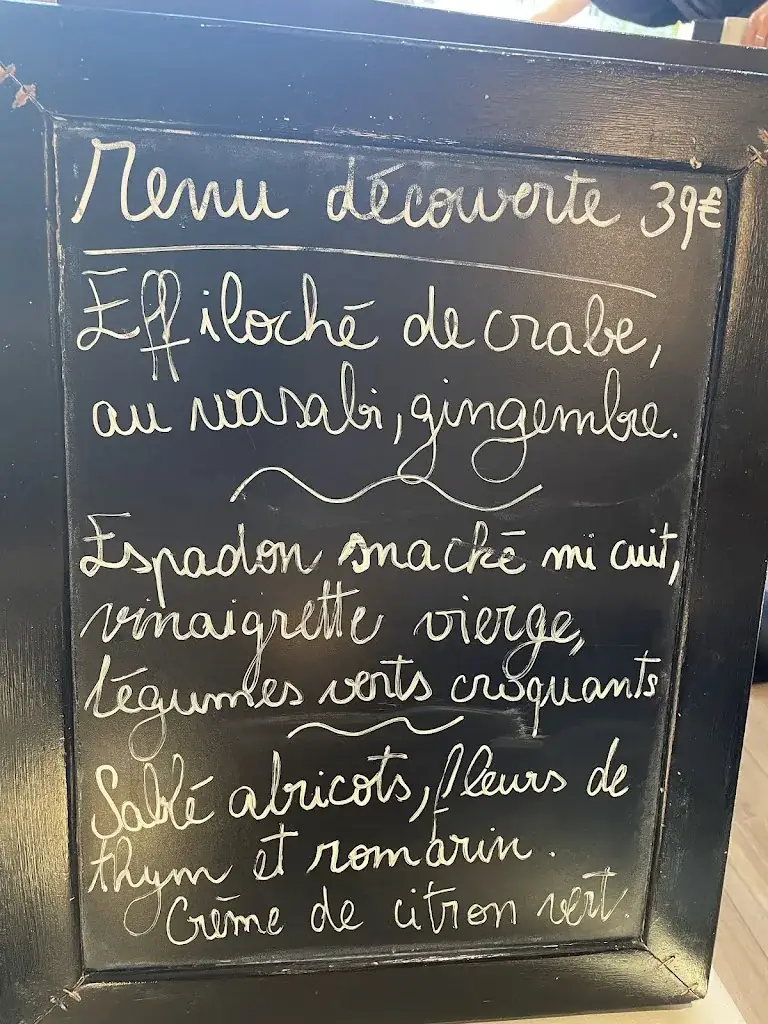 Menu découverte 39€
Effiloché de crabe,
au wasabi, gingembre.
Espadon snacké mi cuit,
vinaigrette vierge,
légumes verts croquants
Sablé abricots, fleurs de
thym et romarin.
Crème de citron vert.